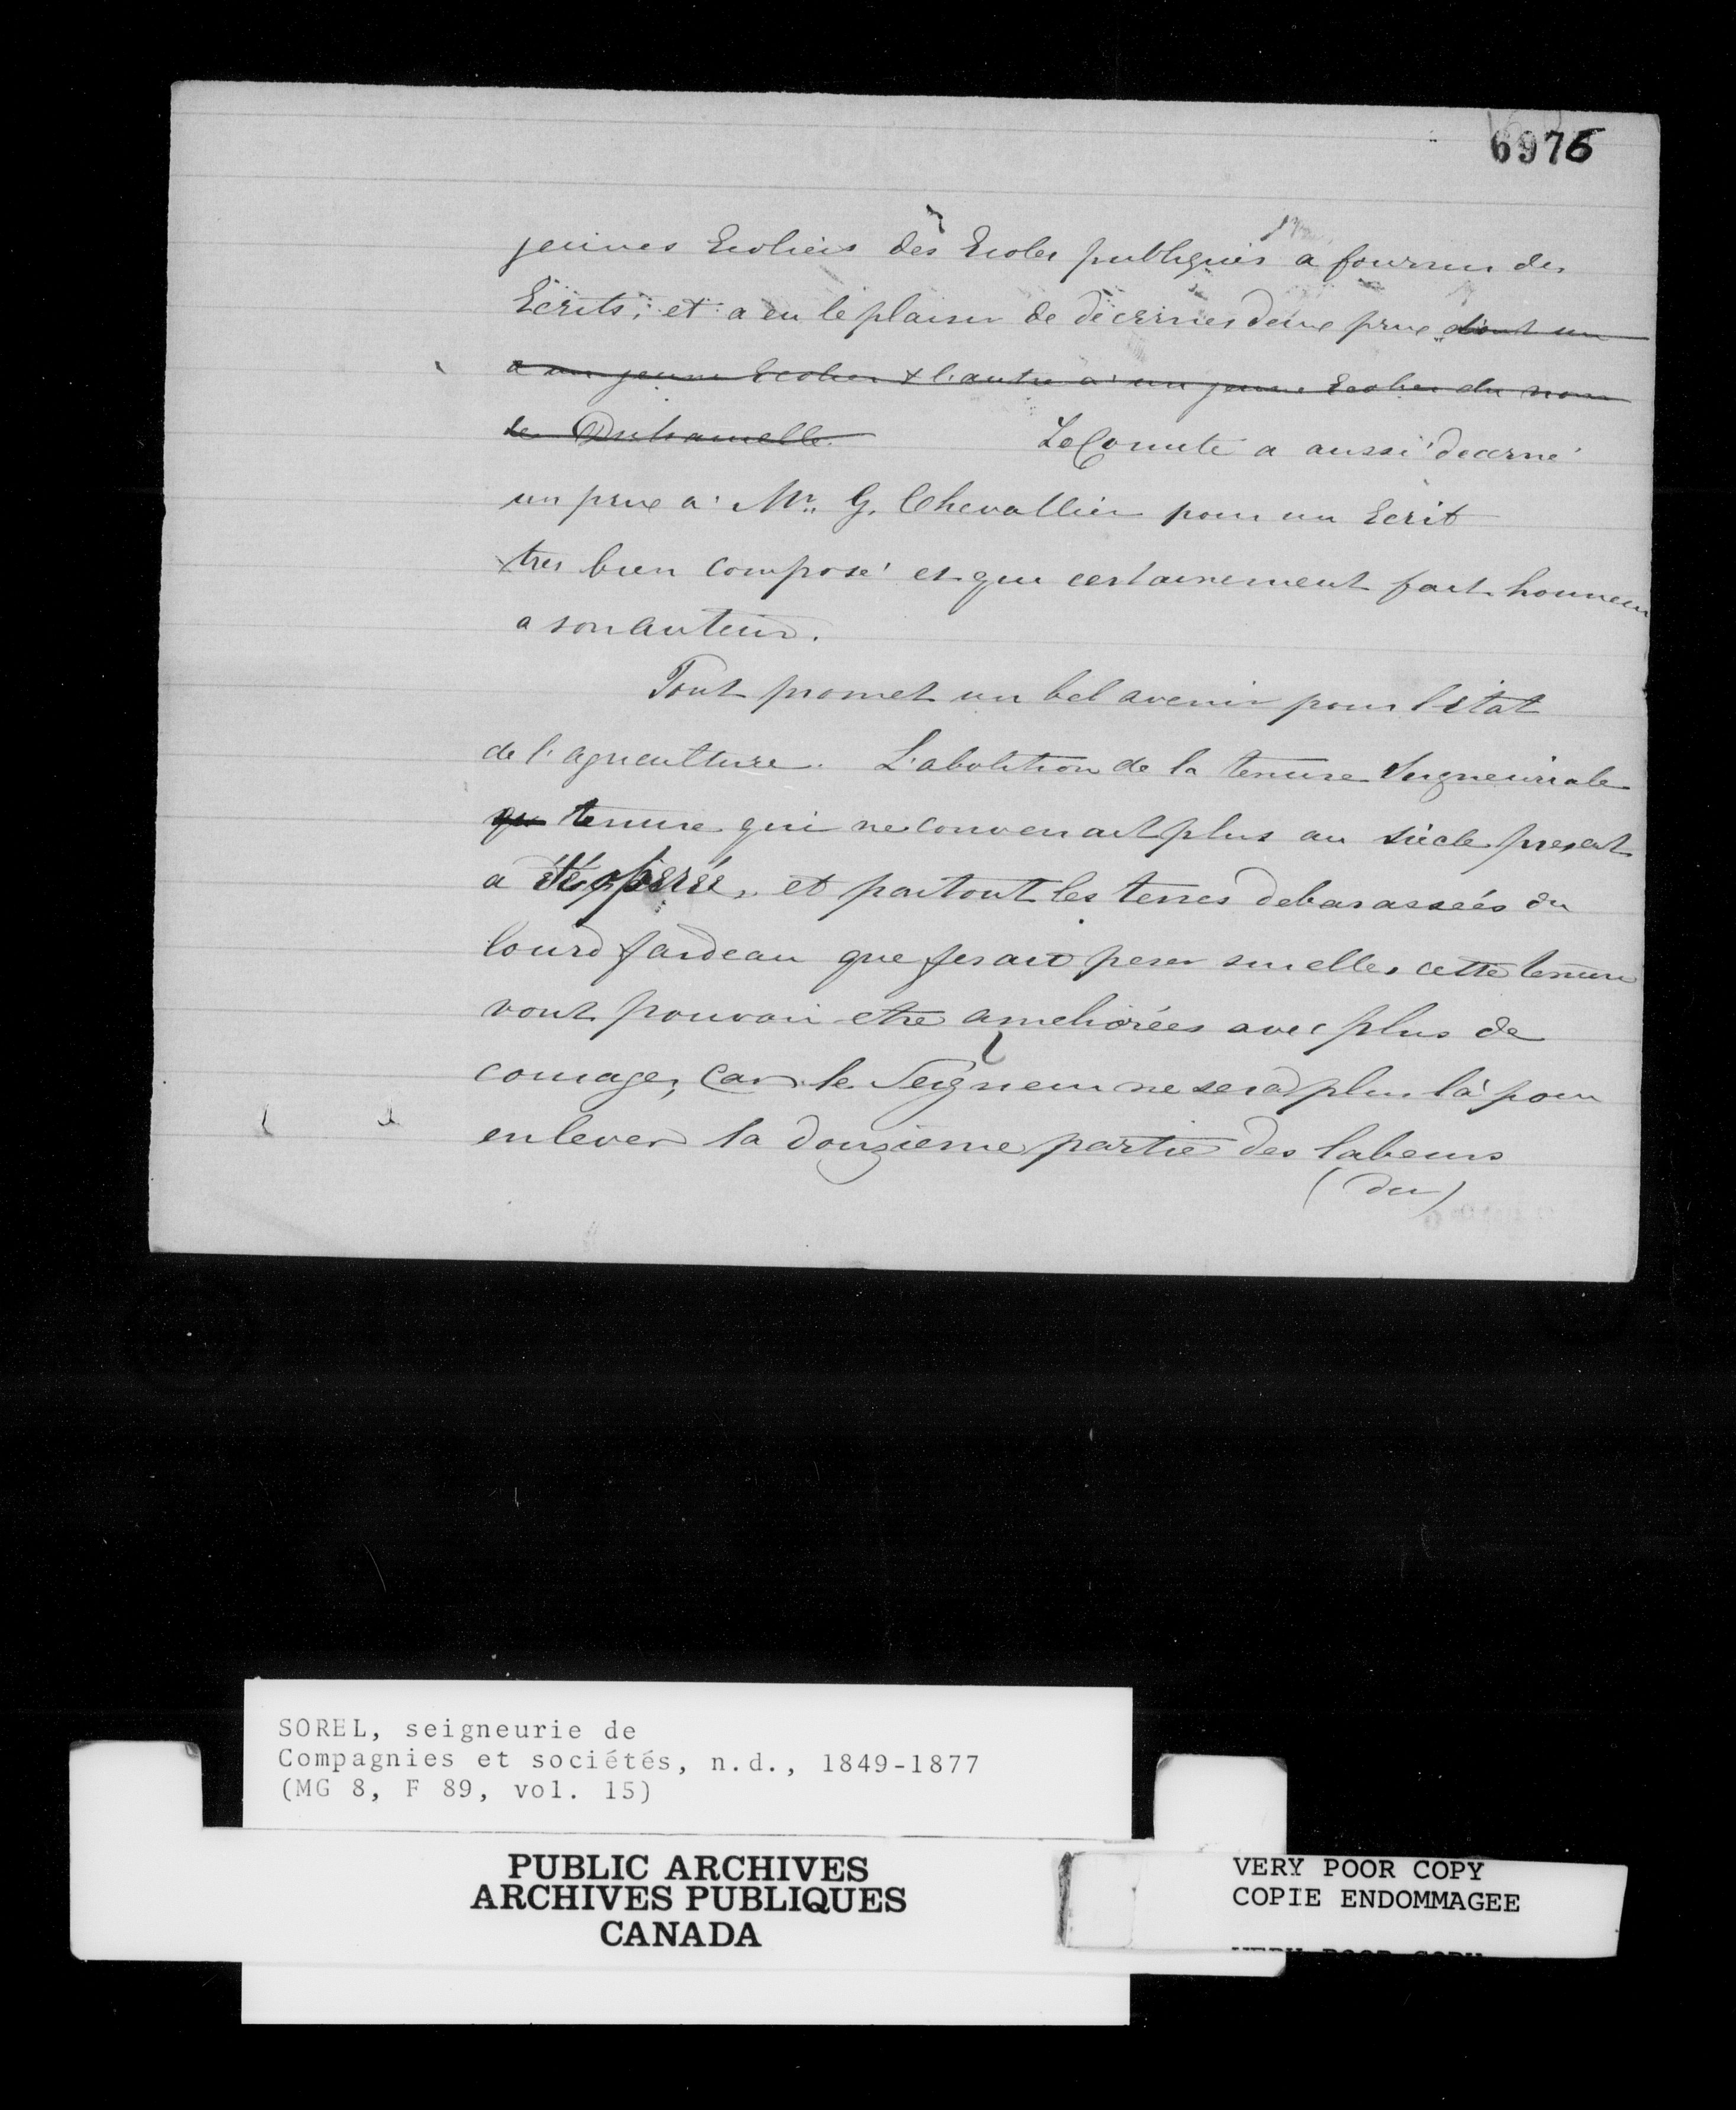 6976
jeunes Ecoliers des Ecoles publiques a fournir des
Ecrits; et a eu le plaisir de décerner deux prix dont un
a un jeune Ecolier & l'autre a un jeune Ecolier du nom
de Duhamelle. Le Comité a aussi décerné
un prix a Mr. G. Chevallier pour un Ecrit
tres bien composé et qui certainement fait honneur
a son auteur.
Tout promet un bel avenir pour l'état
de l'agriculture. L'abolition de la tenure Seigneuriale
qu tenure qui ne convenait plus au siècle present
a été opérée, et partout les terres debarassées du
lourd fardeau que fesait peser sur elles cette tenure
vont pouvoir etre ameliorées avec plus de
courage, car le Seigneur ne sera plus là pour
enlever la douzieme partie des labeurs
(du)
SOREL, seigneurie de
Compagnies et sociétés, n.d., 1849-1877
(MG 8, F 89, vol. 15)
PUBLIC ARCHIVES
ARCHIVES PUBLIQUES
CANADA
VERY POOR COPY
COPIE ENDOMMAGEE
VERY POOR COPY